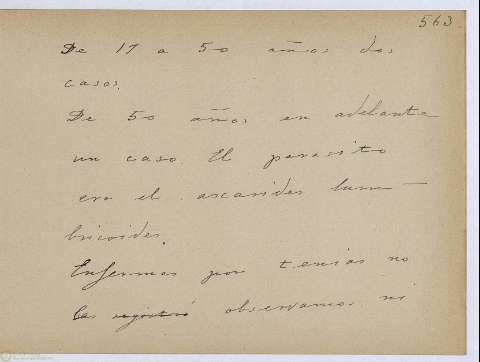 563
De 17 a 50 años dos
casos.
De 50 años en adelante
un caso. El parasito
era el ascarides lum-
bricoides.
Enfermas por tenias no
las registró observamos ni